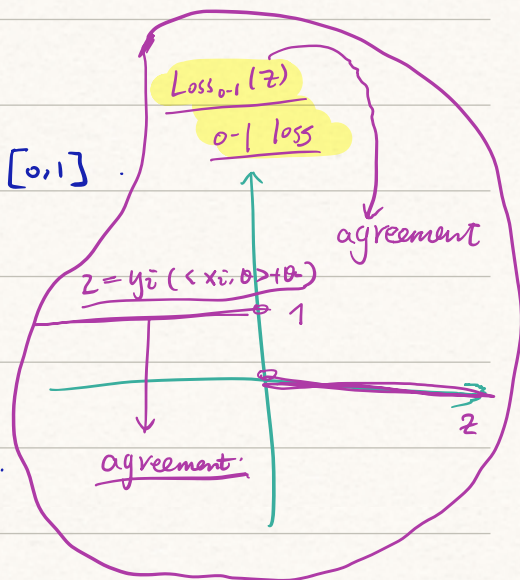 Loss₀₋₁(z)
0-1 loss
[0,1] .
agreement
z = yᵢ (<xᵢ, θ> + θ₀)
1
z
agreement.